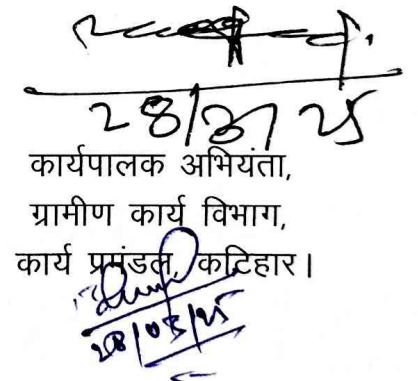 28/3/25
कार्यपालक अभियंता,
ग्रामीण कार्य विभाग,
कार्य प्रमंडल, कटिहार।
28/03/25